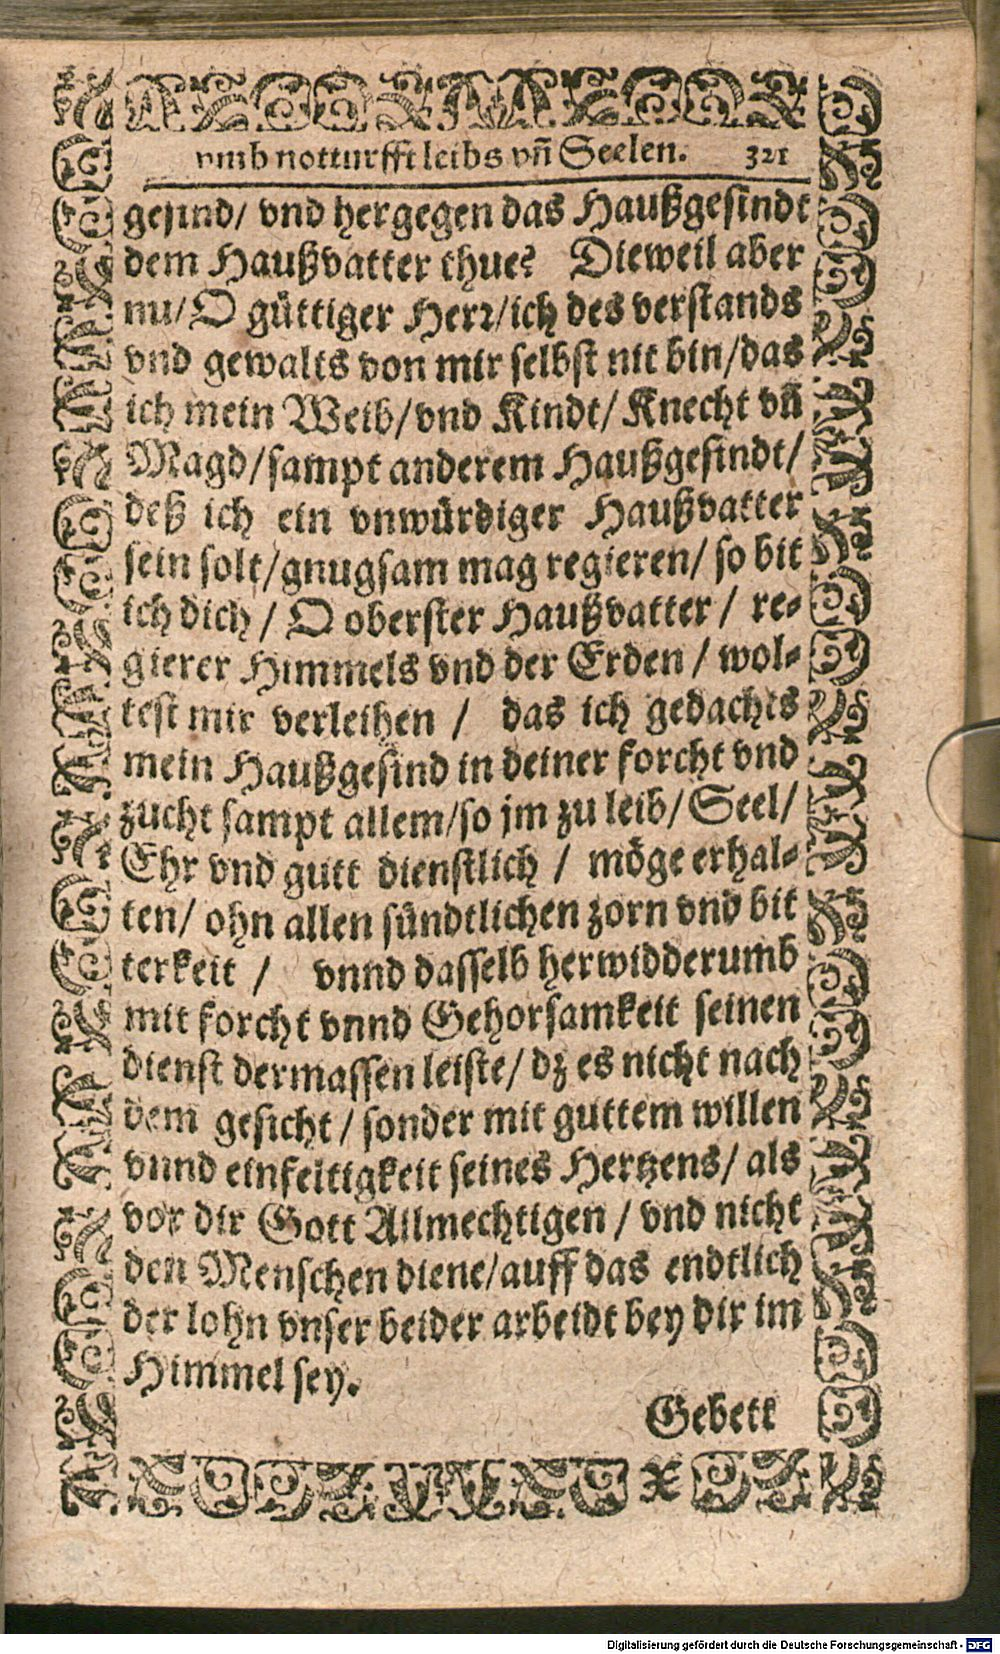 vmb notturfft leibs vñ Seelen. 321
gesind/ vnd hergegen das Haußgesindt
dem Haußvatter thue? Dieweil aber
nu/ O güttiger Herꝛ/ ich des verstands
vnd gewalts von mir selbst nit bin/ das
ich mein Weib/ vnd Kindt/ Knecht vñ
Magd/ sampt anderem Haußgesindt/
deß ich ein vnwürdiger Haußvatter
sein solt/ gnugsam mag regieren/ so bit
ich dich/ O oberster Haußvatter/ re-
gierer Himmels vnd der Erden/ wol-
test mir verleihen/ das ich gedachts
mein Haußgesind in deiner forcht vnd
zucht sampt allem/ so jm zu leib/ Seel/
Ehr vnd gutt dienstlich/ möge erhal-
ten/ ohn allen sündtlichen zorn vnd bit
terkeit/ vnnd dasselb herwidderumb
mit forcht vnnd Gehorsamkeit seinen
dienst dermassen leiste/ dz es nicht nach
dem gesicht/ sonder mit guttem willen
vnnd einfeltigkeit seines Hertzens/ als
vor dir Gott Allmechtigen/ vnd nicht
den Menschen diene/ auff das endtlich
der lohn vnser beider arbeidt bey dir im
Himmel sey.
Gebett
X
Digitalisierung gefördert durch die Deutsche Forschungsgemeinschaft - DFG